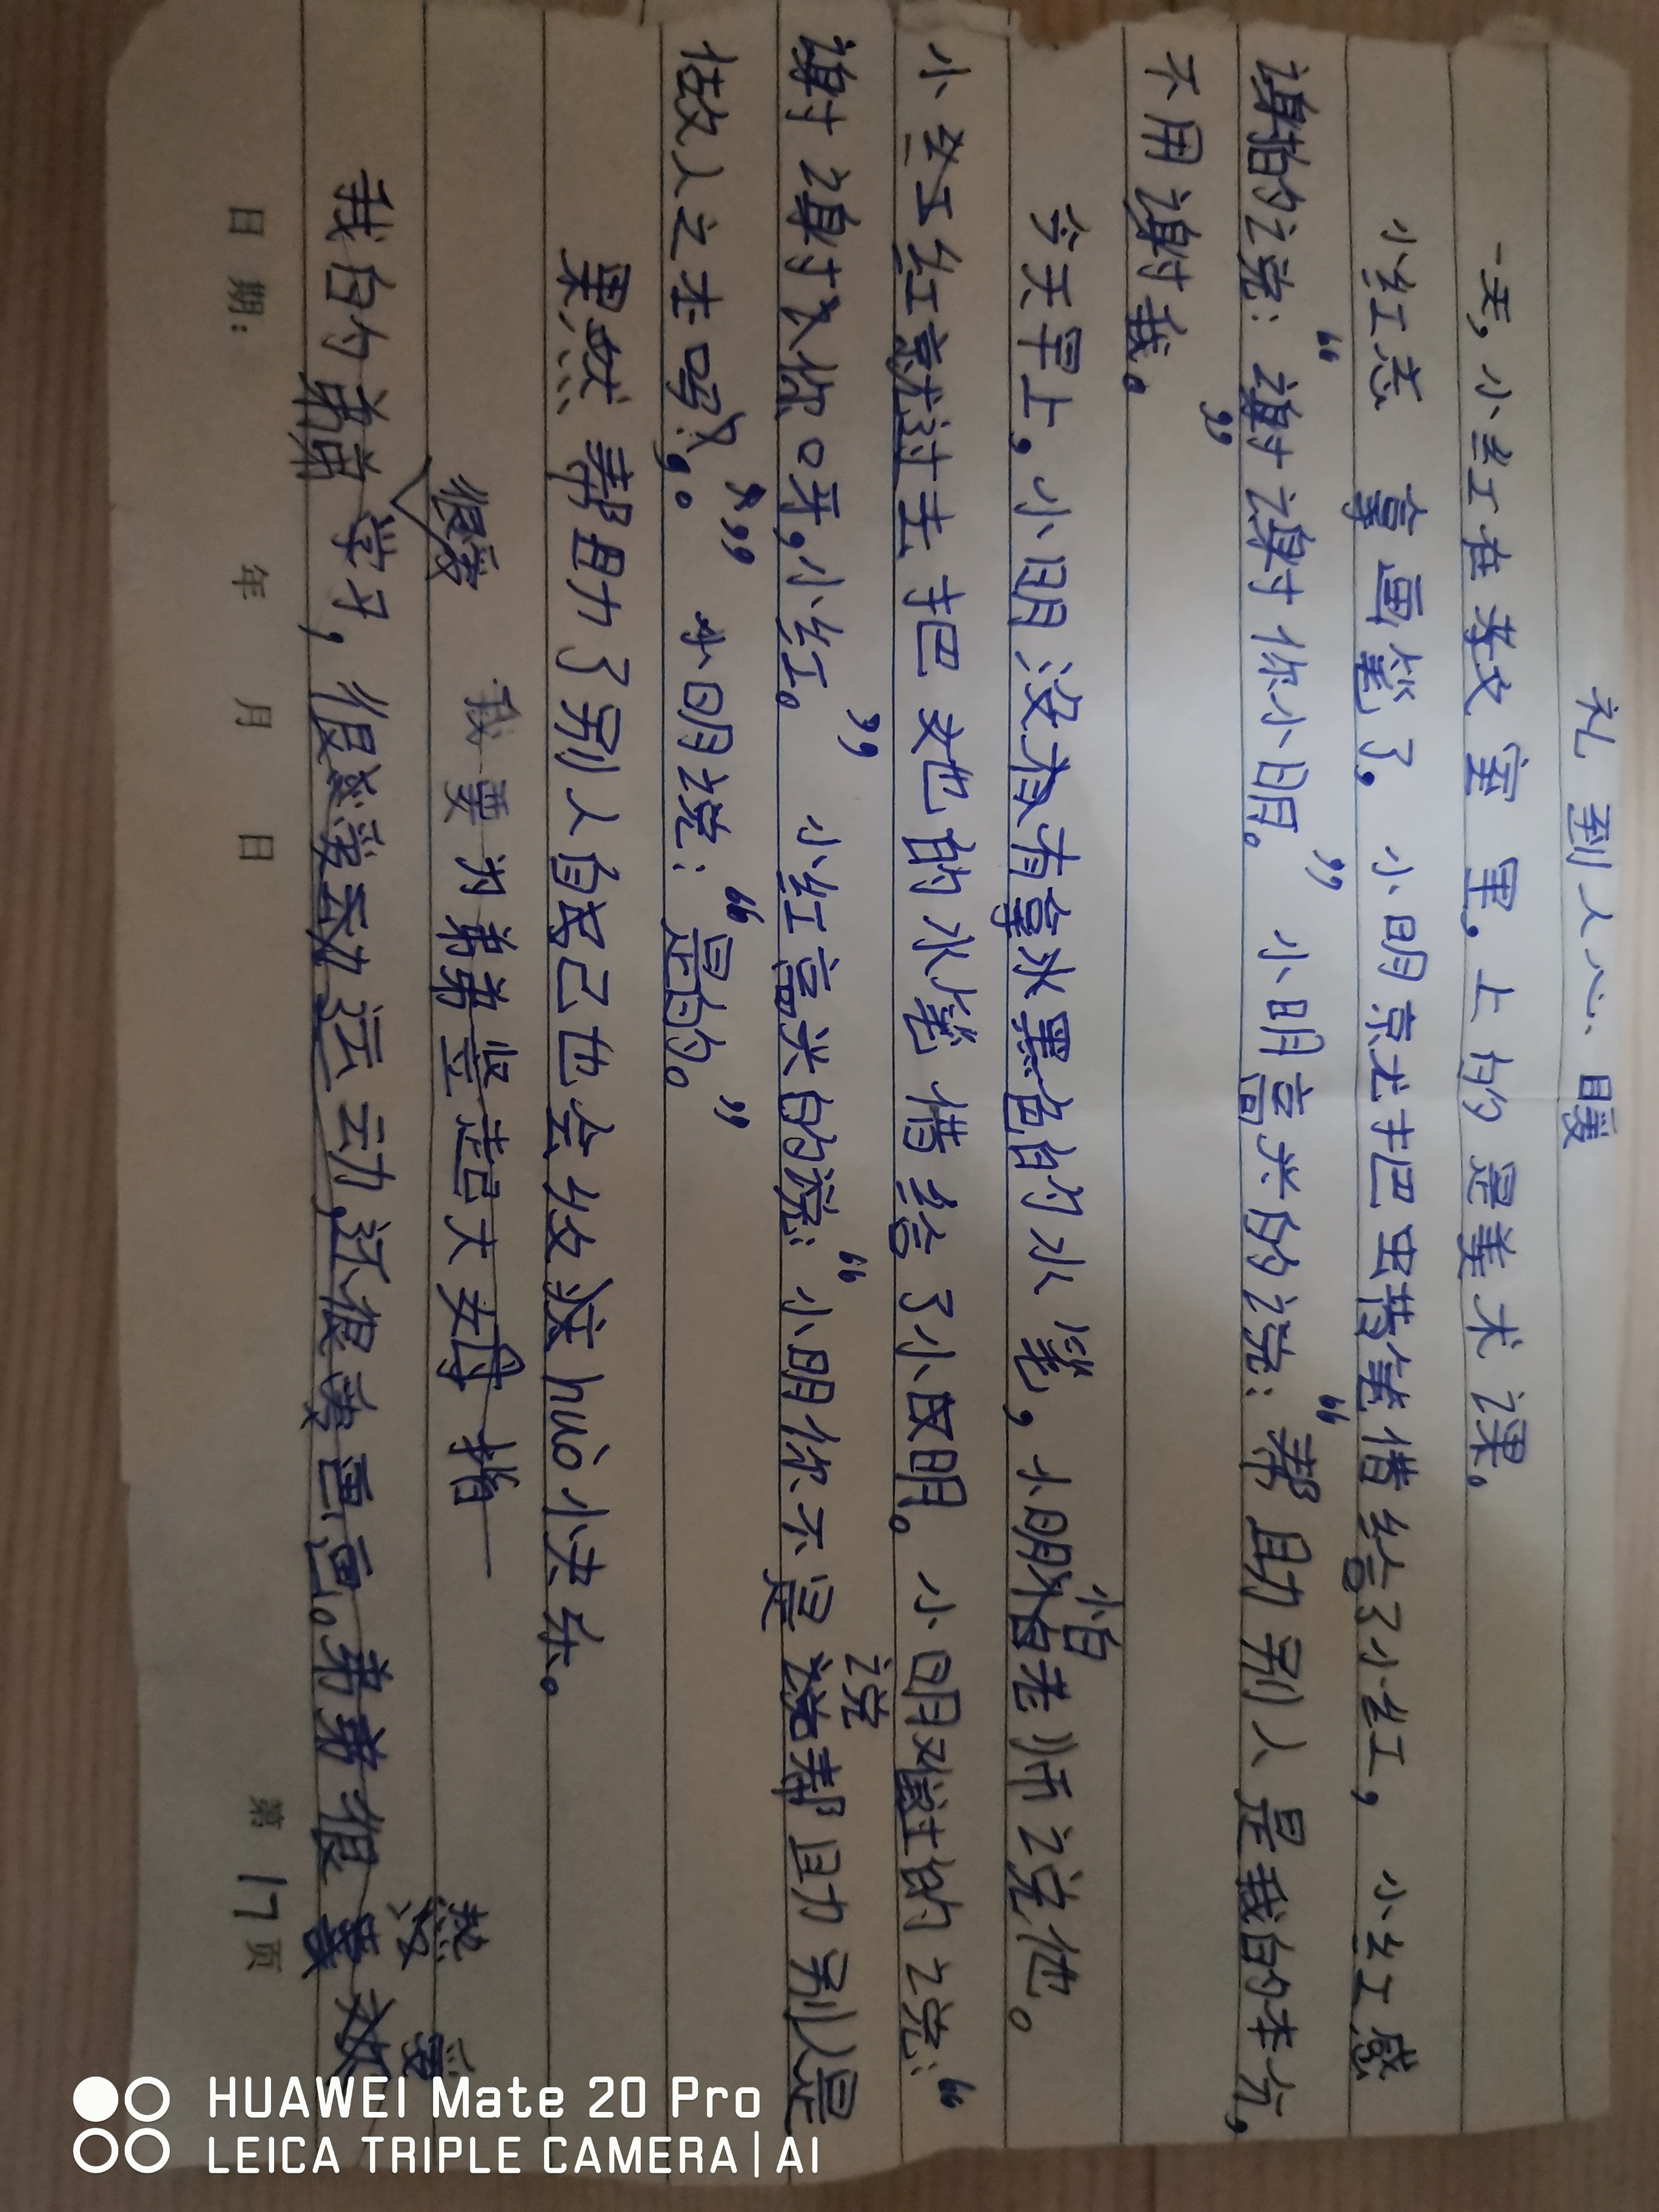 礼到人心暖
一天，小红在教室里。上的是美术课。
小红忘拿画笔了。小明京尤把虫带笔借给了小红，小红感
谢的说：“谢谢你小明。”小明高兴的说：“帮助别人是我的本分，
不用谢我。”
今天早上，小明没有拿水黑色的水笔，小明怕老师说他。
小红就过去把她的水笔借给了小明。小明对的说：“
谢谢你呀，小红。”小红高兴的说：小明你不是说帮助别人是
做人之本吗？”小明说：“是的。”
果然帮助了别人自己也会收获huò小快乐。
我要为弟弟竖起大拇指
我的弟弟很爱学习，很爱运动，还很爱画画。弟弟很
热爱
日期： 年 月 日 第17页
HUAWEI Mate 20 Pro
LEICA TRIPLE CAMERA | AI